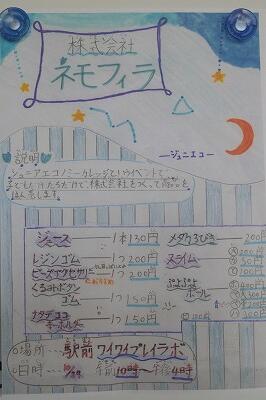 株式会社
ネモフィラ
ージュニエコー
説明
ジュニアエコノミーカレッジというイベントで、
子どもたちだけで、株式会社をつくって商品を
はん売します。
ジュース 1本130円
レジンゴム 1つ200円
ビーズアクセサリー 1つ200円
くるみボタン
ゴム 1つ150円
ナタデココ
キーホルダー 1つ150円
メダカ5ひき 200円
スライム 大200円
中150円
小100円
ぷよぷよ
ボール
○場所…駅前ワイワイプレイラボ
○日時…午前10時〜午後4時